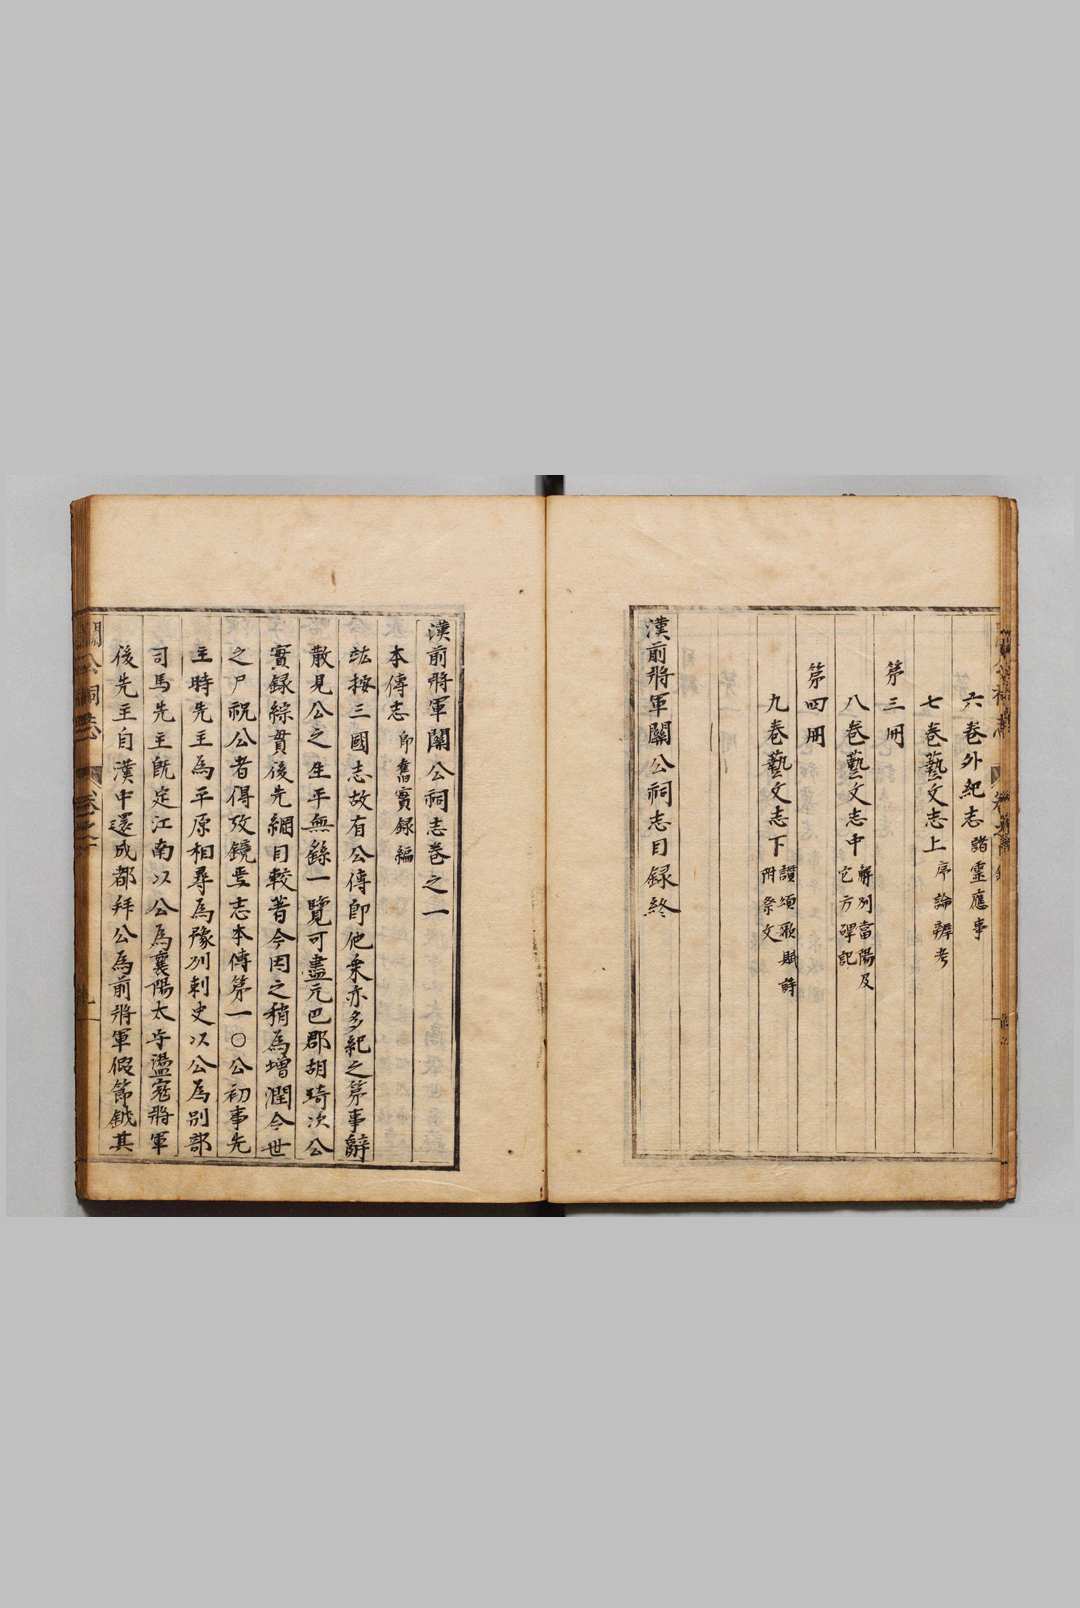 六卷外紀志 諸靈應事
七卷藝文志上 序論辨考
第三冊
八卷藝文志中 解州當陽及它方碑記
第四冊
九卷藝文志下 讚頌歌賦詩附祭文
漢前將軍關公祠志目録終
漢前將軍關公祠志卷之一
本傳志 即舊實録編
竑按三國志故有公傳即他乗亦多紀之第事辭
散見公之生平無繇一覽可盡元巴郡胡琦次公
實録綜貫後先綱目較著今因之稍為增潤令世
之尸祝公者得攷鏡焉志本傳第一〇公初事先
主時先主為平原相尋為豫州刺史以公為別部
司馬先主既定江南以公為襄陽太守盪寇將軍
後先主自漢中還成都拜公為前將軍假節鉞其
關公祠志
卷之一